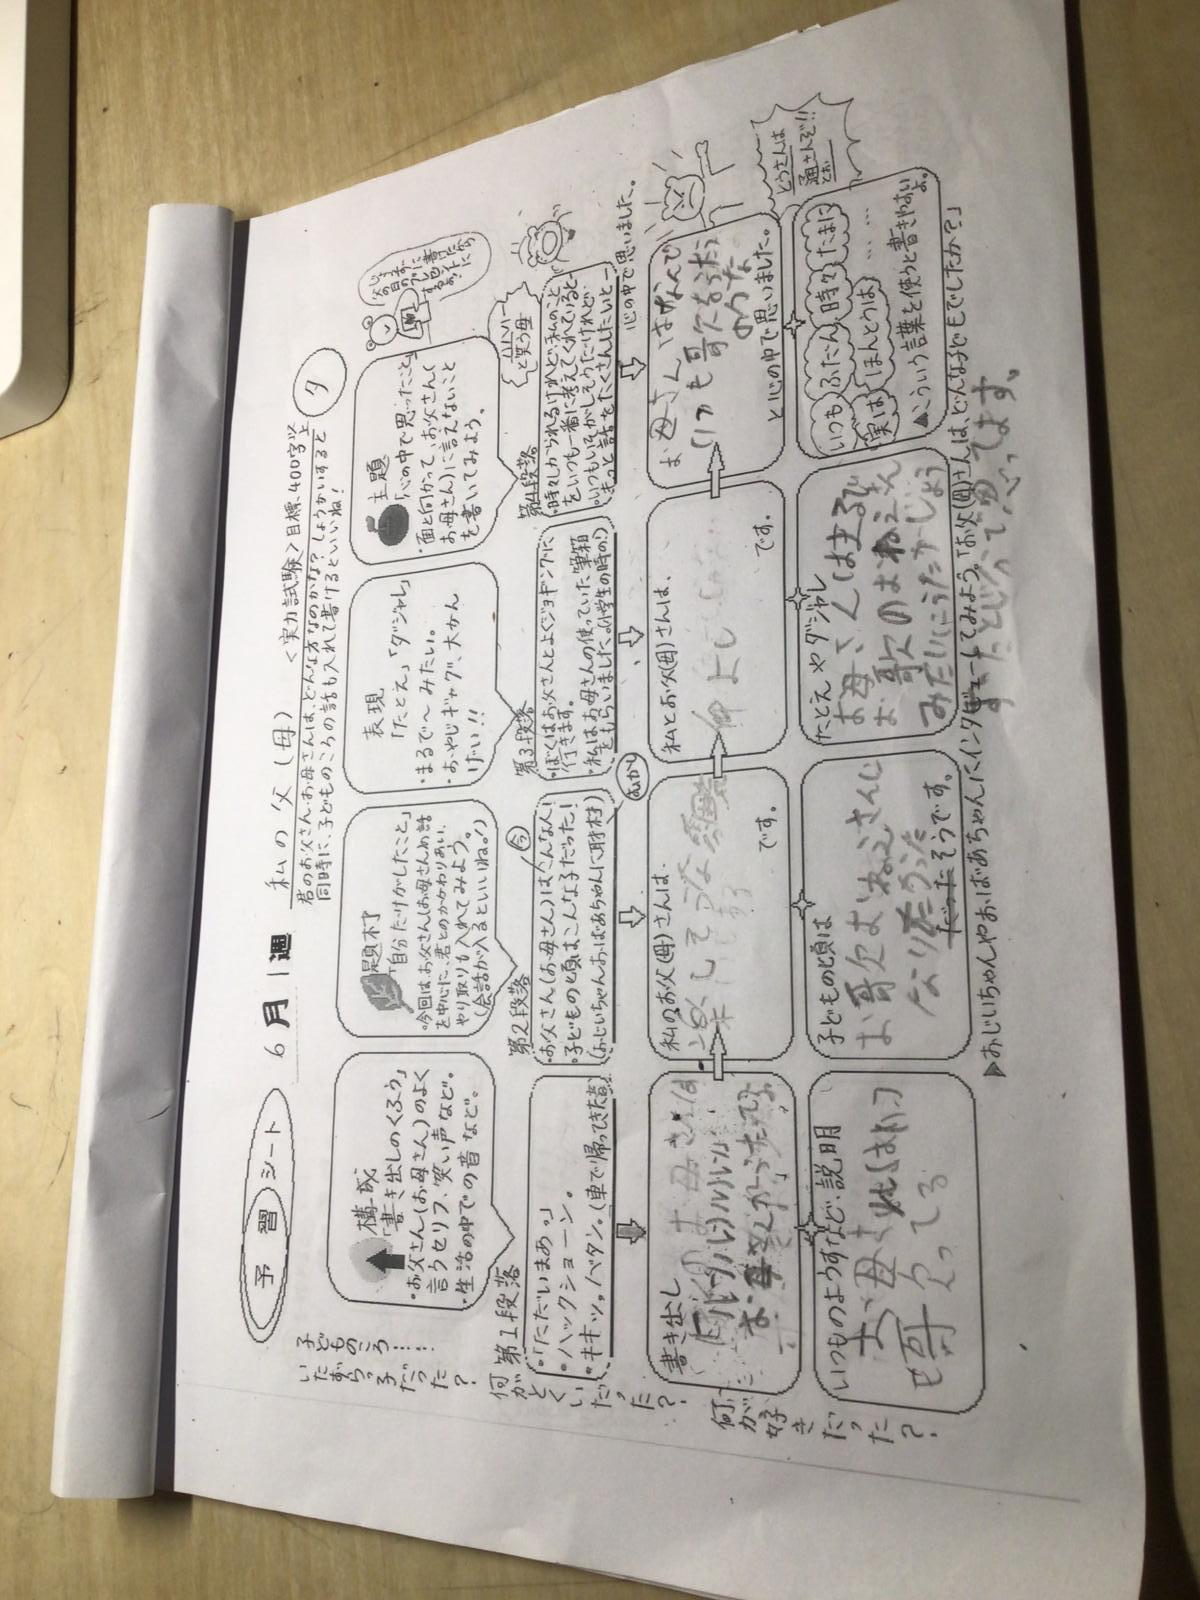 予習シート
6月1週
私の父(母)
<実力試験>目標400字以上
夕
君のお父さん・お母さんは、どんな方なのかな?しょうかいすると
同時に、子どものころの話も入れて書けるといいね!
子どものころ……
いたずらっ子だった?
構成
「書き出しのくふう」
・お父さん(お母さん)のよく
言うセリフ、笑い声など。
・生活の中での音など。
題材
「自分だけがしたこと」
・今回はお父さん(お母さん)の話
を中心に、君とのかかわりあい、
やり取りも入れてみよう。
(会話が入るといいね。)
表現
「たとえ」「ダジャレ」
・まるで〜みたい。
・おやじギャグ、大かん
げい!!
主題
「心の中で思ったこと」
・面と向かって、お父さん(
お母さん)に言えないこと
を書いてみよう。
何がとくいだった?
第1段落
・「ただいまあっ」
・ハックショーン。
・キキッ。バタン。(車で帰ってきた音)
第2段落
今
・お父さん(お母さん)はこんな人!
・子どもの頃はこんな子だった!
(おじいちゃんおばあちゃんに取材)
むかし
第3段落
・ぼくはお父さんとよくジョギングに
行きます。
・私はお母さんの使っていた筆箱
をもらいました。(小学生の時の)
第4段落
ハハハー
と笑う母
・時々しかられるけれど、私のこと
をいつも一番に考えてくれていると
・いつもいそがしそうだけれど
もっと話をたくさんしたいと―
心の中で思いました。
何が好きだった?
書き出し
私のお父(母)さんは、
楽しくて
です。
私とお父(母)さんは、
仲よし
です。
お母さんはなんで
いつも歌をうたう
のかな
と心の中で思いました。
とうさんは
通さんぞ!!
とぉ
いつものようすなど、説明
お母さんは
歌ってる
子どもの頃は
お歌のおねえさんに
なりたかった
だったそうです。
たとえやダジャレ
お母さんはまるで
お歌のおねえさん
みたいにうたがじょう
ずだとじぶんで思ってます。
いつも ふだん 時々 たまに
実は ほんとうは ……
▲こういう言葉を使うと書きやすいよ。
▶おじいちゃんやおばあちゃんにインタビューしてみよう。「お父(母)さんは、どんな子どもでしたか?」